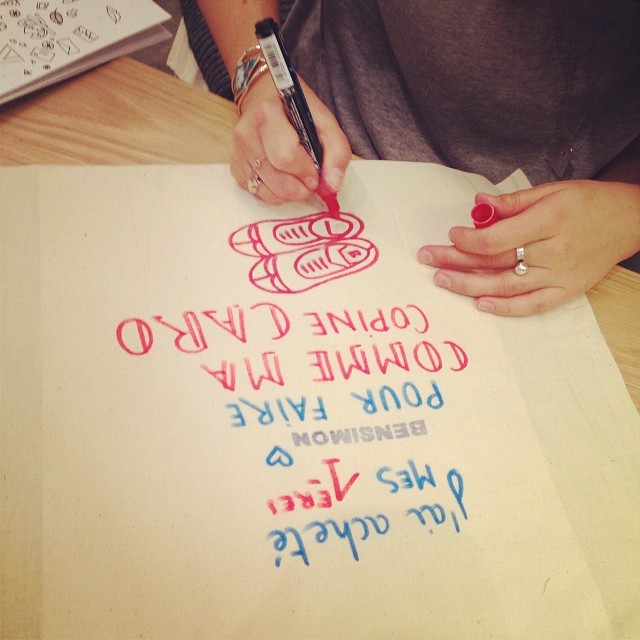 J'ai acheté
MES 1ÈRES
BENSIMON ♡
POUR FAIRE
COMME MA
COPINE CARO